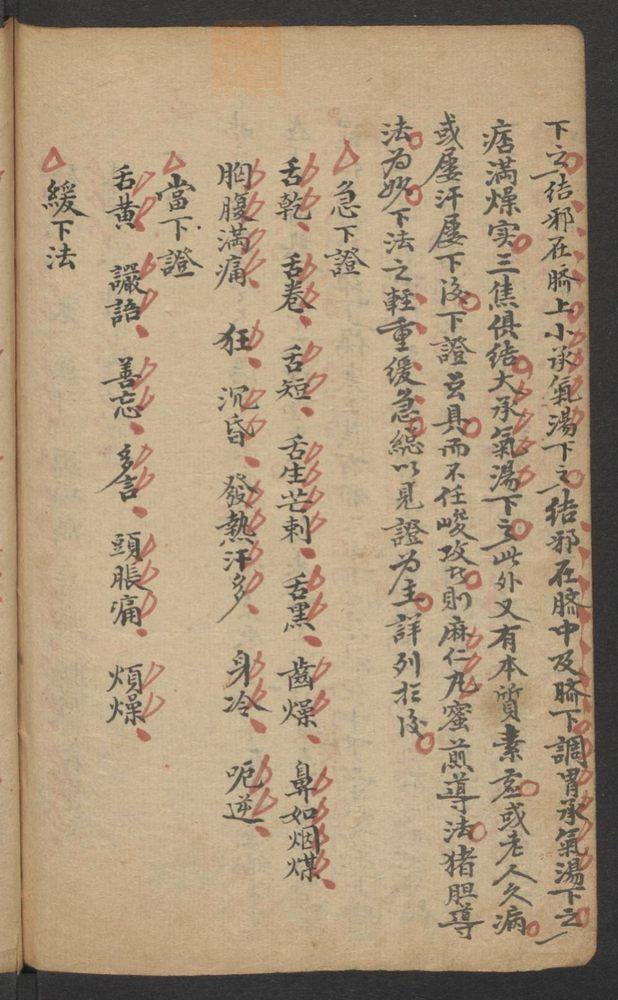 下之結邪在臍上小承氣湯下之結邪在臍中及臍下調胃承氣湯下之
痞滿燥实三焦俱結大承氣湯下之此外又有本質素虛或老人久病
或屡汗屡下後下證虽具而不任峻攻者則麻仁丸蜜煎導法猪胆導
法為妙下法之軽重缓急総以見證為主詳列於後
急下證
舌乾 舌卷 舌短 舌生芒刺 舌黑 齒燥 鼻如烟煤
胸腹满痛 狂 沉昏 發熱汗多 身冷 呃逆
當下證
舌黄 讝語 善忘 多言 頭脹痛 煩燥
緩下法